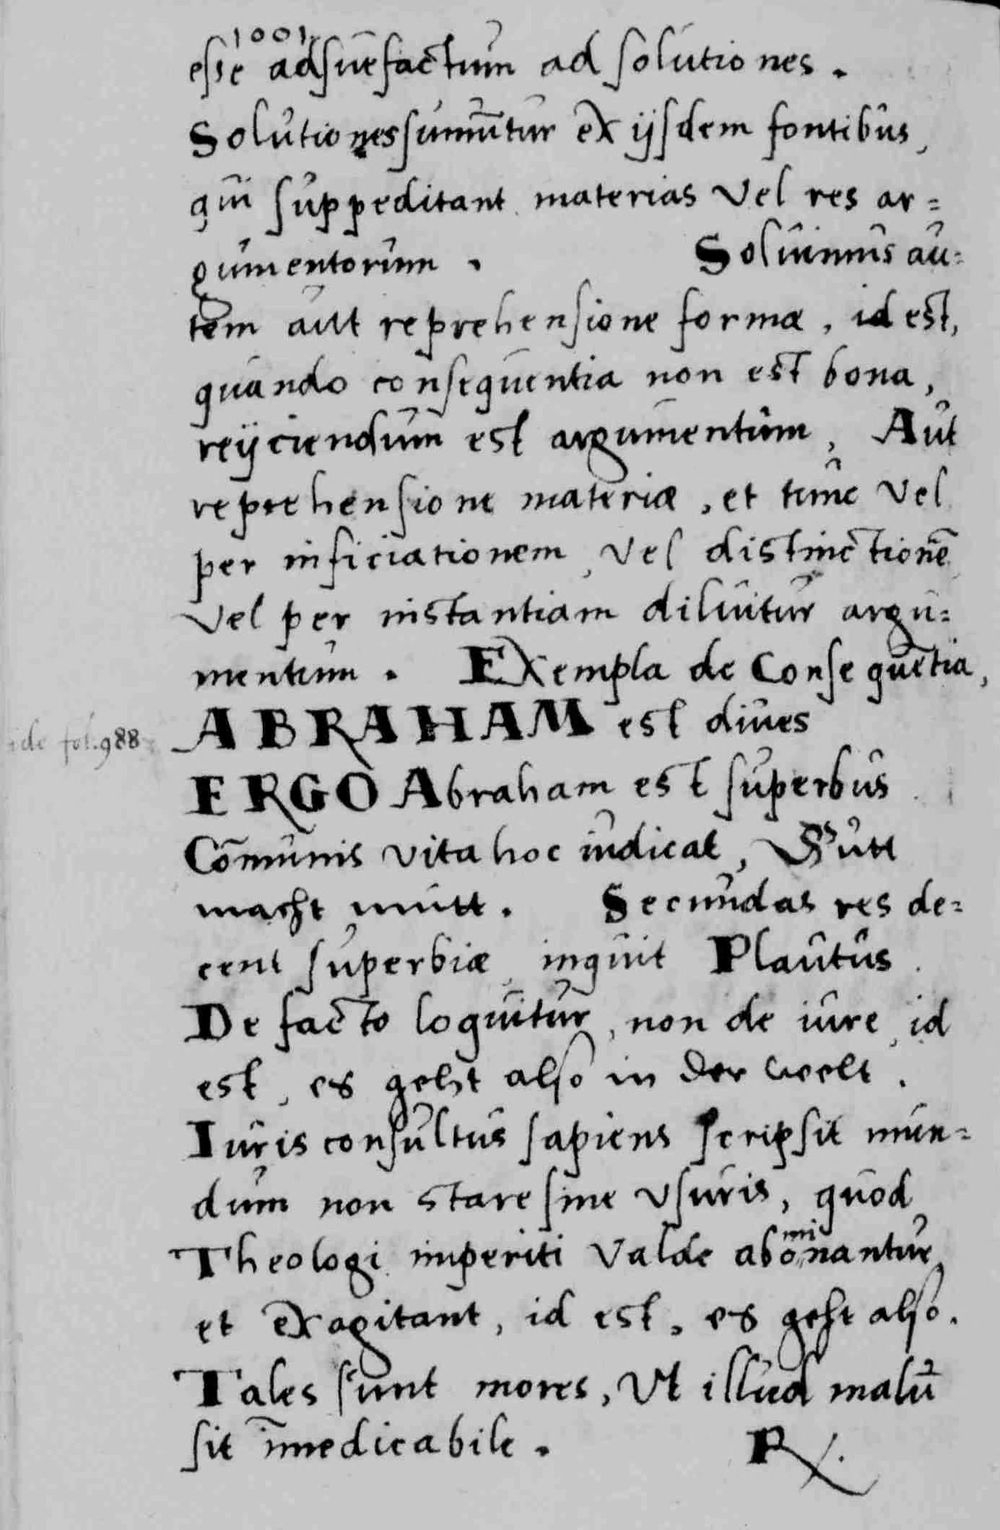 1001
esse adsuefactum ad solutiones.
Solutiones sumuntur ex ijsdem fontibus,
qui suppeditant materias vel res ar=
gumentorum. Soluimus au=
tem aut reprehensione formæ, id est,
quando consequentia non est bona,
reijciendum est argumentum, Aut
reprehensione materiæ, et tunc vel
per inficiationem, vel distinctionē
vel per instantiam diluitur argu=
mentum. Exempla de Consequētia,
ABRAHAM est diues
de fol. 988
ERGO Abraham est superbus
Cōmunis vita hoc iudicat, Gutt
macht mutt. Secundas res de=
cent superbiæ inquit Plautus.
De facto loquitur, non de iure, id
est, es geht also in der welt.
Iuris consultus sapiens scripsit mun=
dum non stare sine vsuris, quod
Theologi imperiti valde abominantur,
et exagitant, id est, es geht also.
Tales sunt mores, Vt illud malū
sit īmedicabile. R.